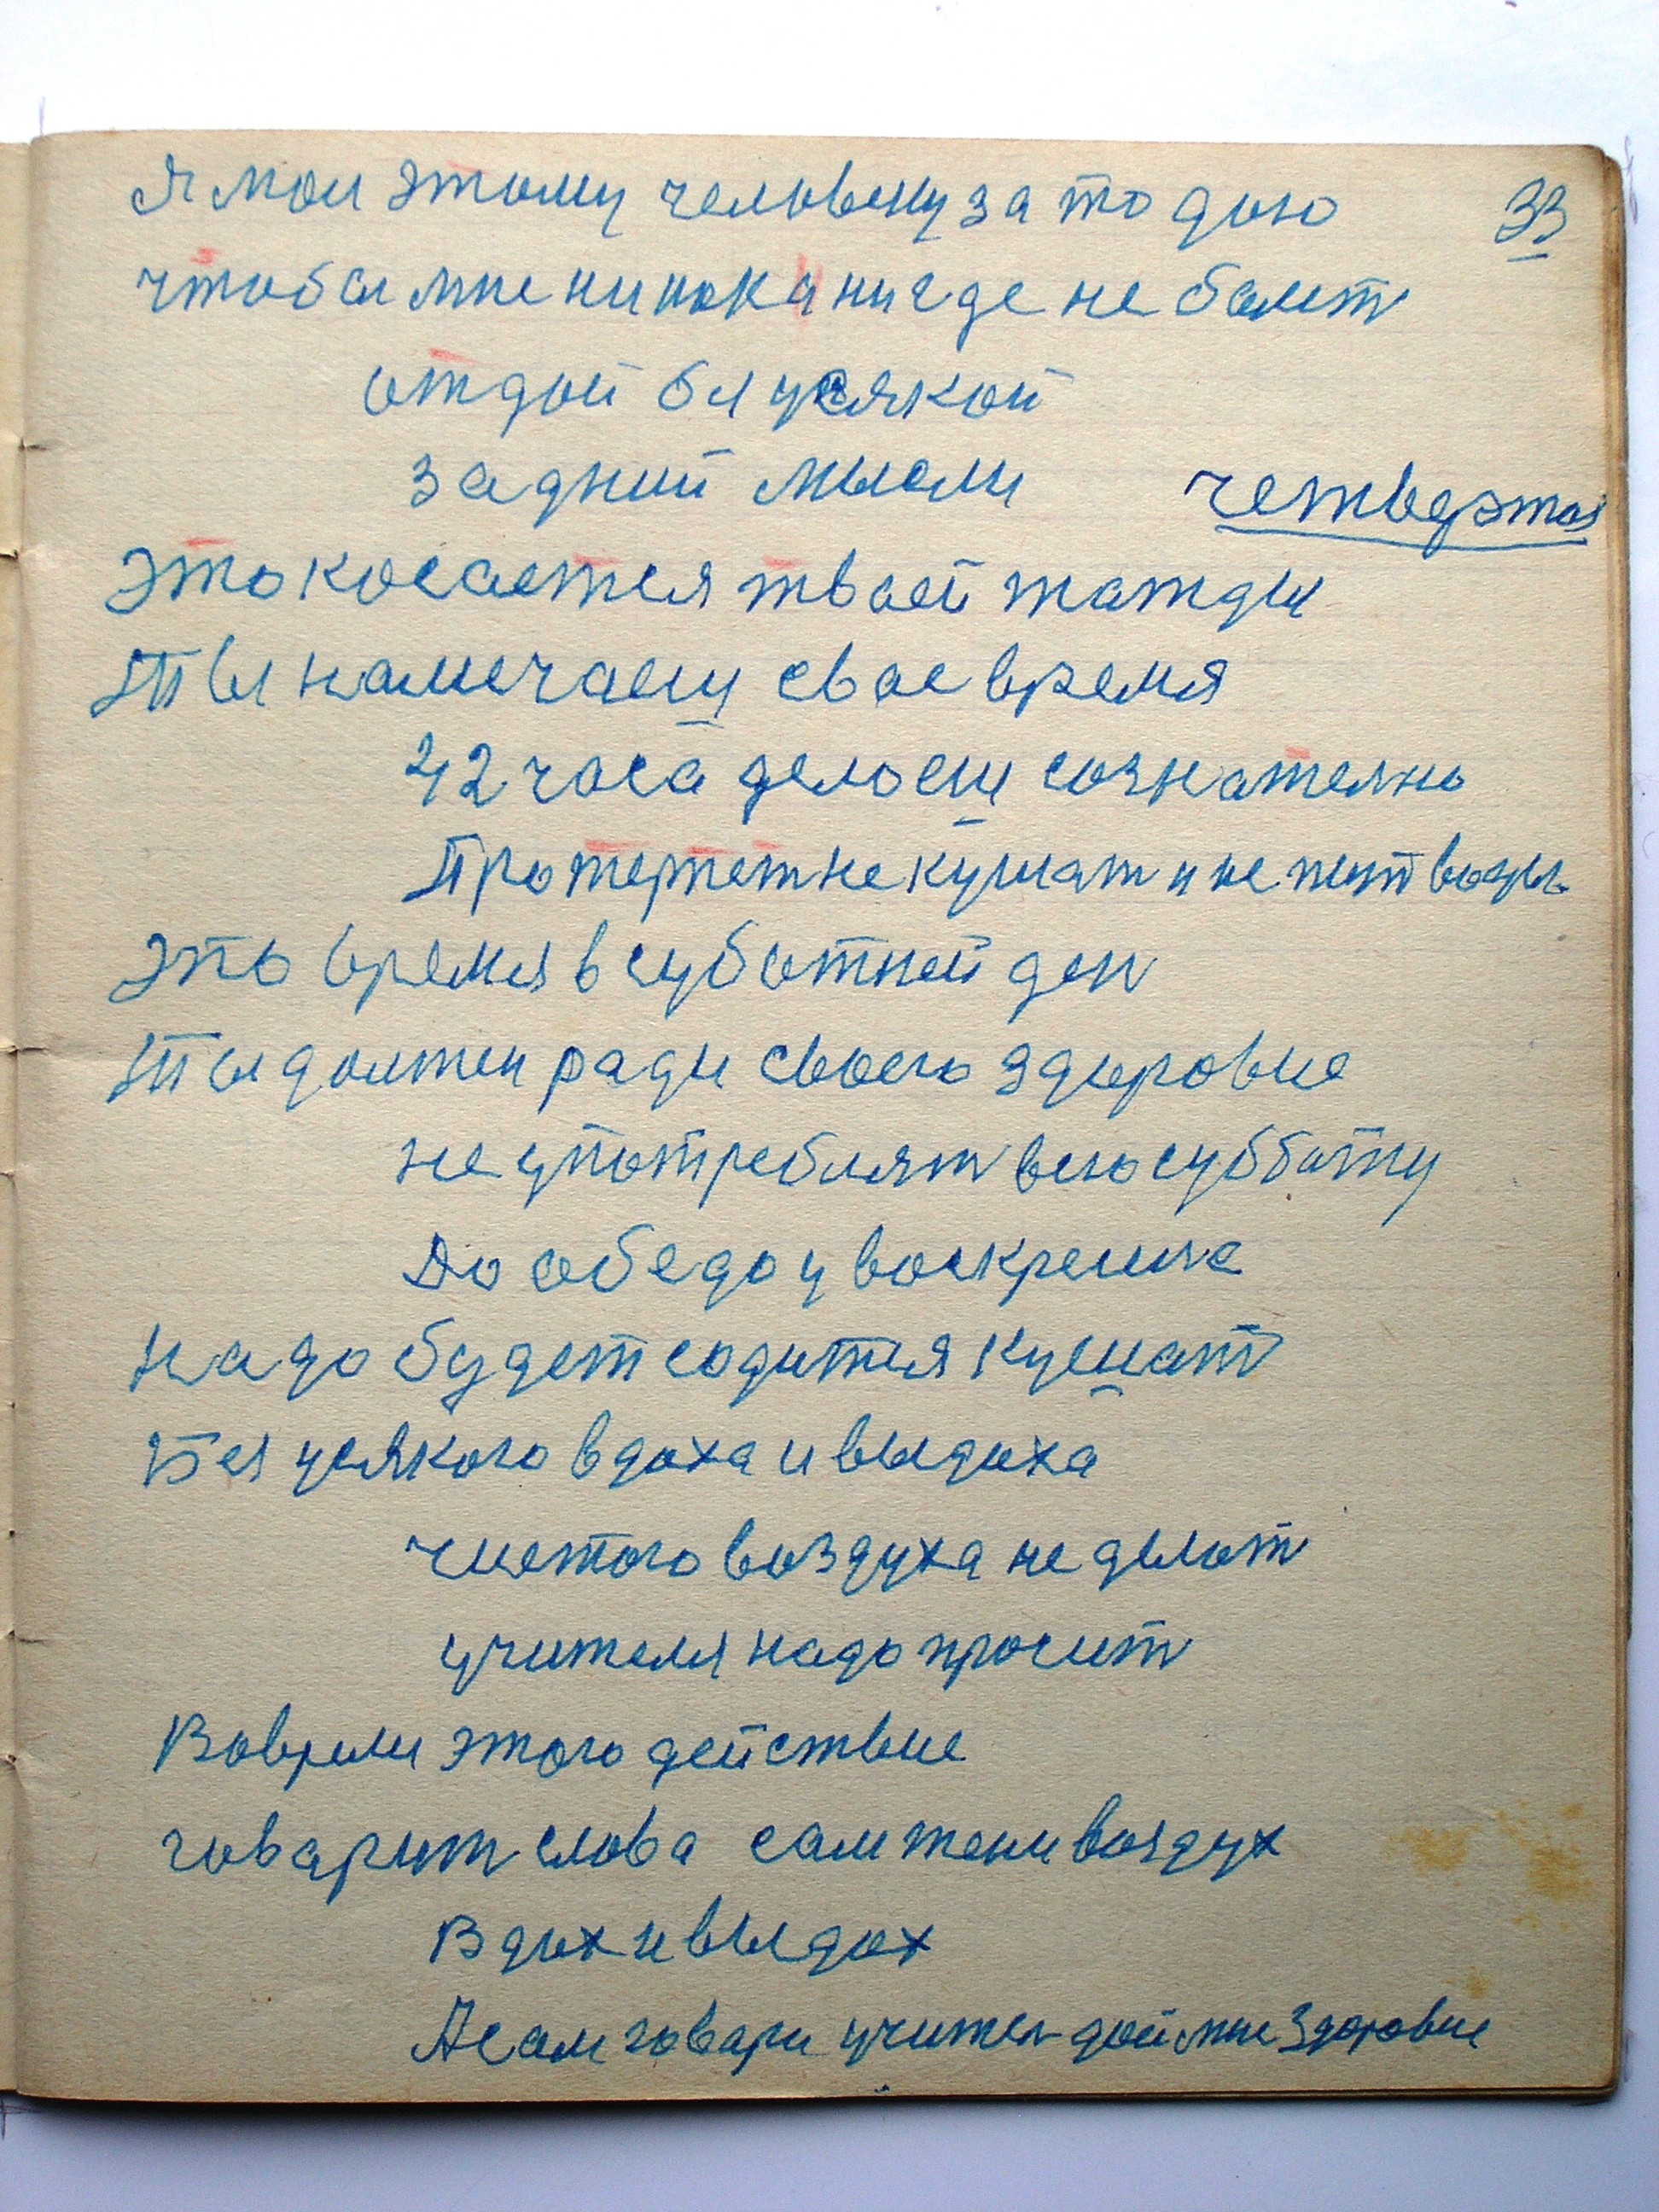 33
я мои этому человеку за то даю
чтобы мне ни пока нигде не болет
отдой бл усякой
задний мысли
четвертая
это косается твоей жажды
Ты намечаеш свае время
42 часа делоеш сознателно
Про терпет не кушат и не пит воды
это время в суботней ден
Ты должен ради своего здоровие
не употреблят всю субботу
До обедо у воскресние
надо будет садится кушат
Без усякого вдоха и выдоха
чистого воздуха не делат
учителя надо просит
Вовреми этого действие
говарит слова сам тени воздух
Вдох и выдох
А сам говари учител дой мне здоровие